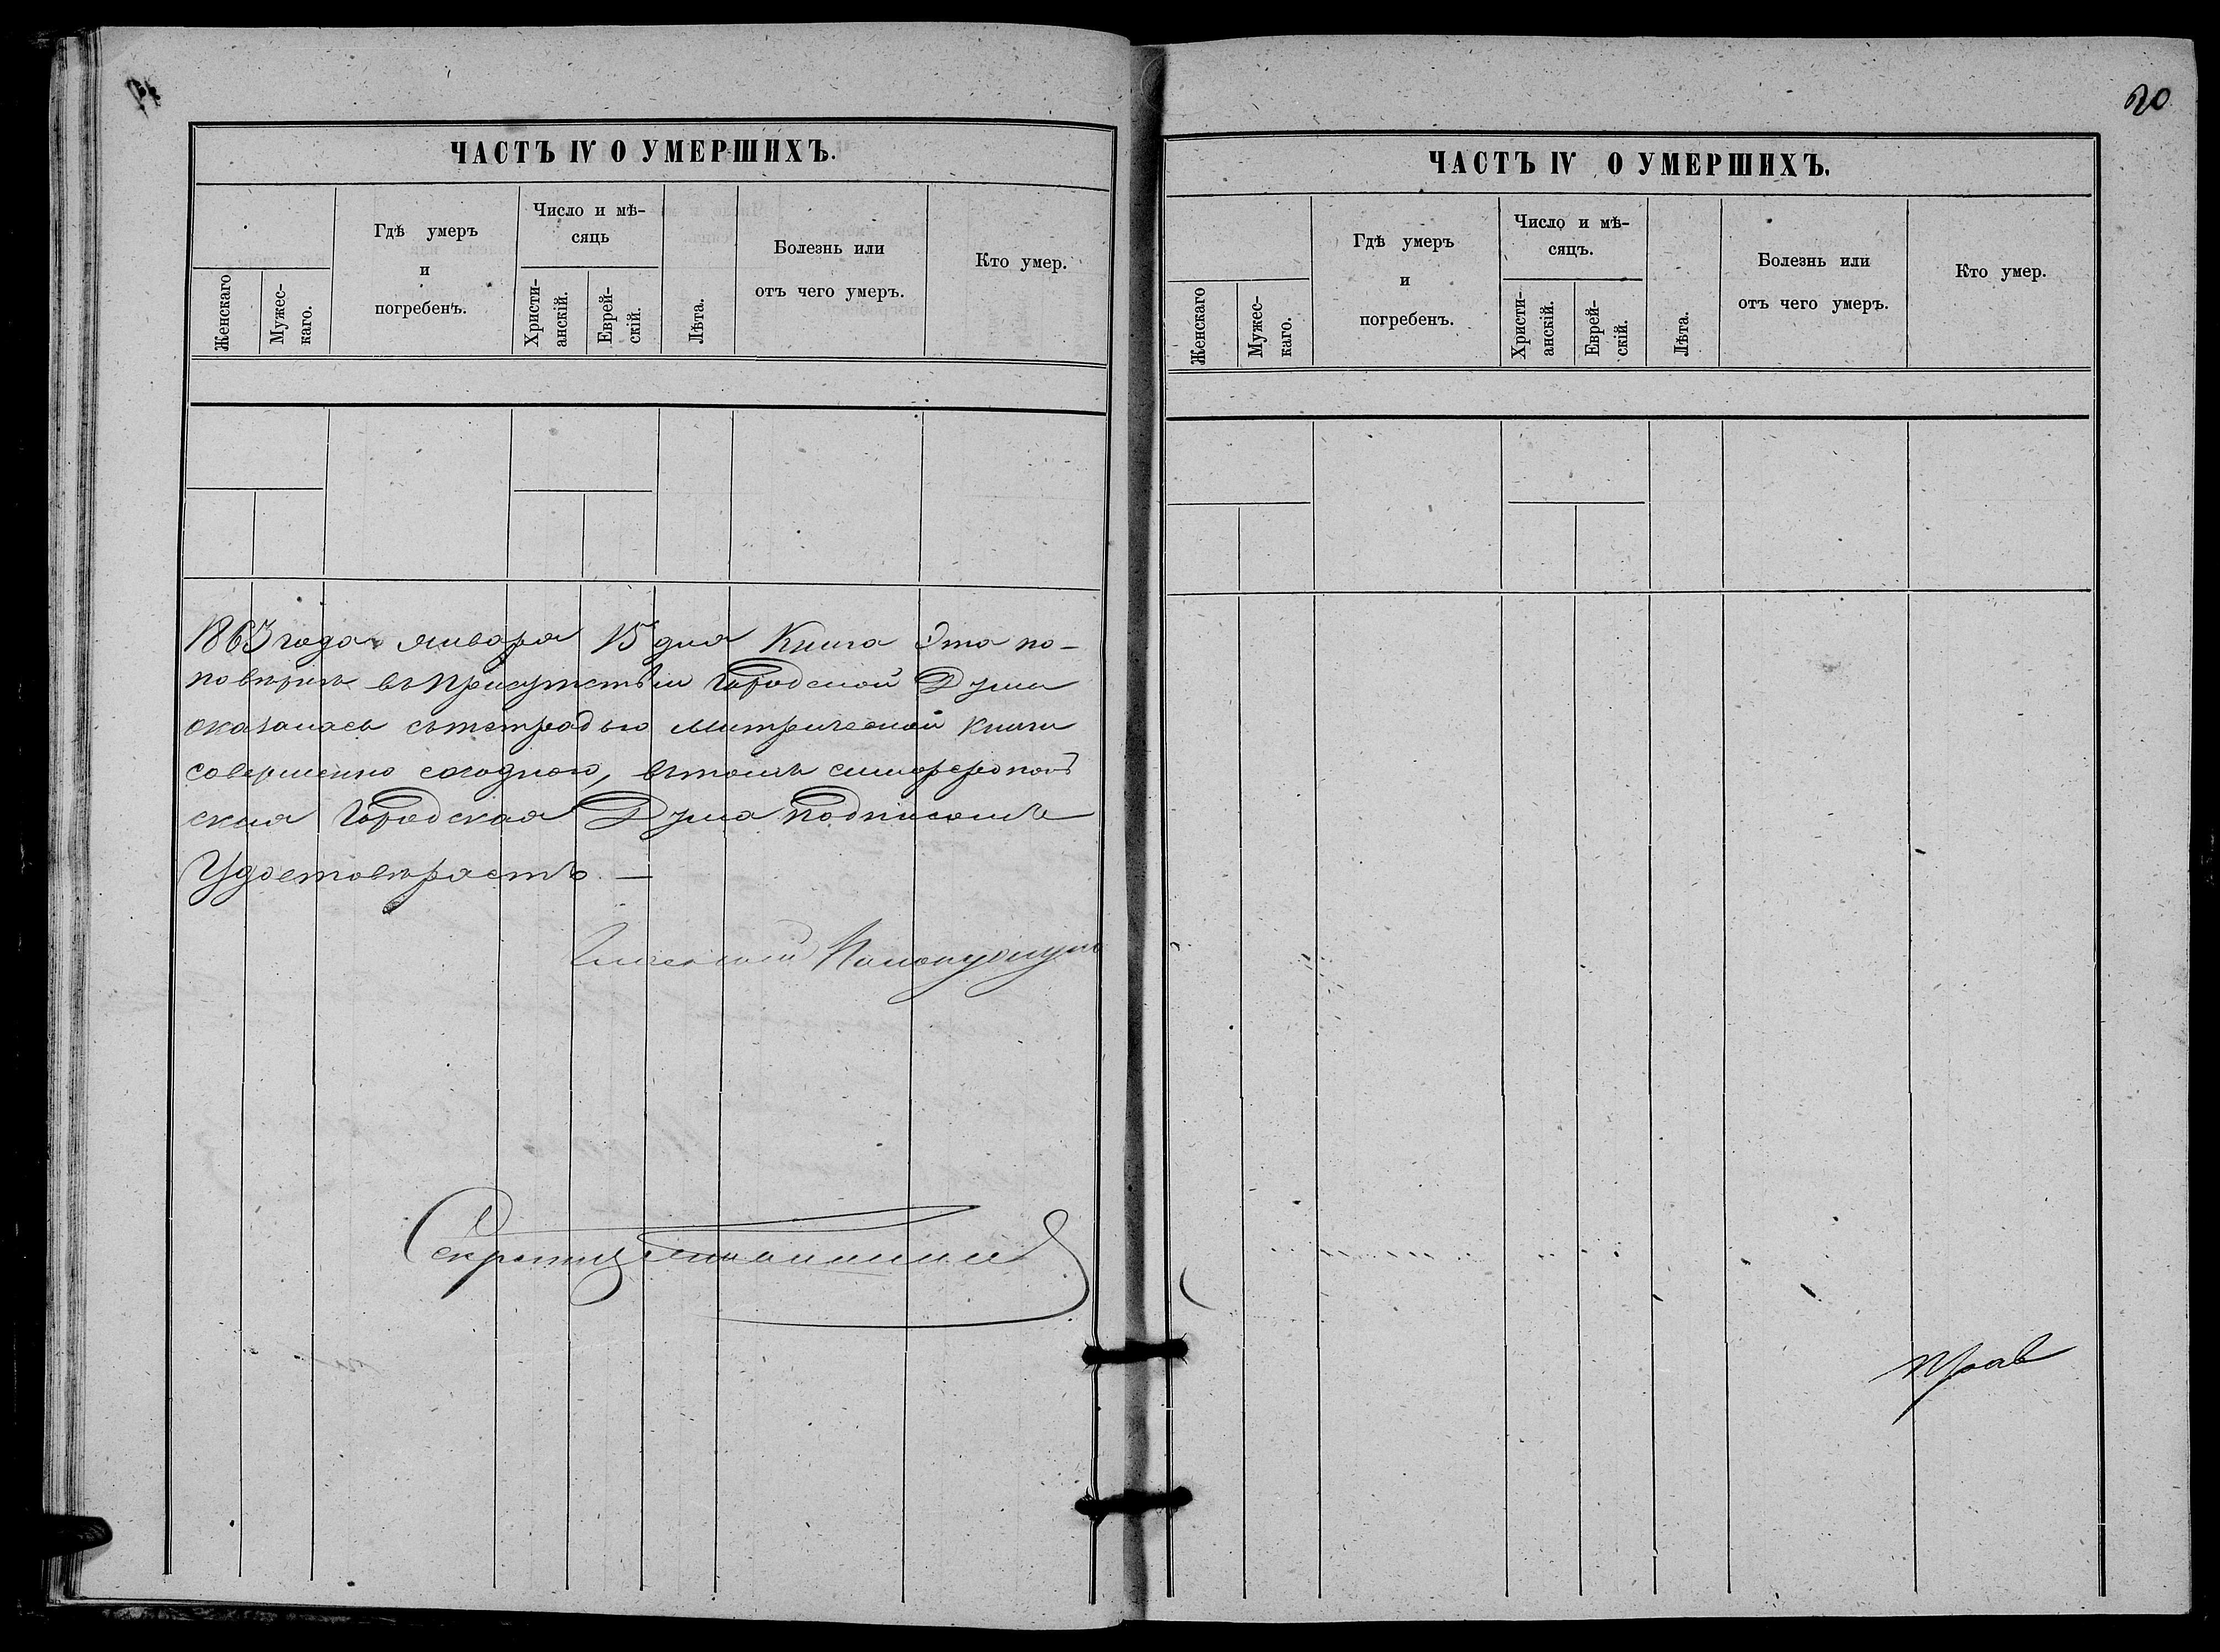 ЧАСТЪ IV О УМЕРШИХЪ.
Женскаго
Мужес-
каго.
Гдѣ умеръ
и
погребенъ.
Число и мѣ-
сяць
Христи-
анскій.
Еврей-
скій.
Лѣта.
Болезнь или
отъ чего умеръ.
Кто умер.
1863 года января 15 дня Книга Эта по-
повѣрке въ присутствіи Городской Думы
оказалась сътетрадью метрической книги
совершенно сходною, въ томъ симферополь
ская Городская Дума подписомъ
Удостовѣряетъ. —
Гласный
Секретарь
20
ЧАСТЪ IV О УМЕРШИХЪ.
Женскаго
Мужес-
каго.
Гдѣ умеръ
и
погребенъ.
Число и мѣ-
сяцъ.
Христи-
анскій.
Еврей-
скій.
Лѣта.
Болезнь или
отъ чего умеръ.
Кто умер.